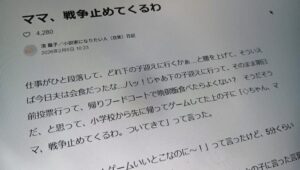 ママ、戦争止めてくるわ
4,280
2026年2月5日 10:33
仕事がひと段落して、どれ下の子迎えに行くかぁ…と腰を上げて、そういえ
ば今日夫は会食だったな…ハッ！じゃあ下の子迎えに行って、そのまま期日
前投票行って、帰りフードコートで晩御飯食べたらよくない？ そうだそう
だ、と思って、小学校から先に帰ってゲームしてた上の子に「○ちゃん、マ
マ、戦争止めてくるわ。ついてきて」って言った。
ゲームいいとこなのに〜！」って言ったけど、5分くらい